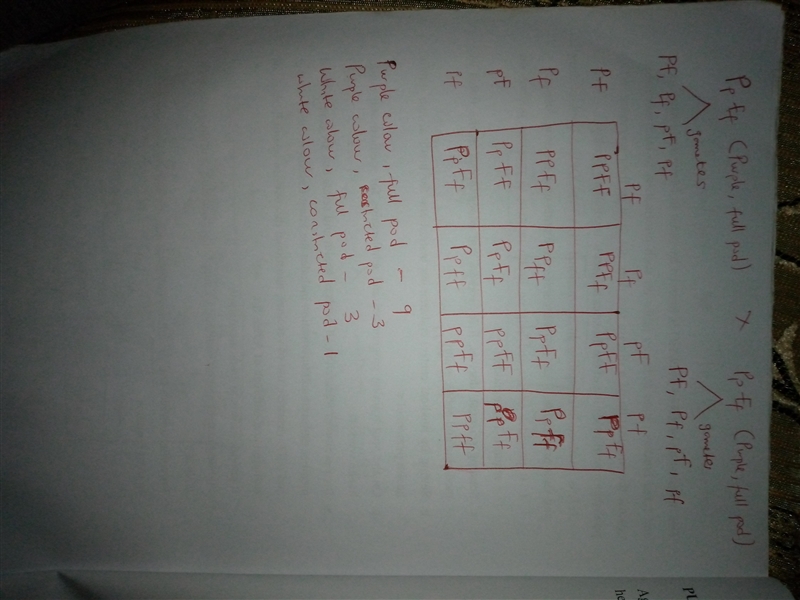 PpFf (Purple, full pod) × PpFf (Purple, full pod)
gametes gametes
PF, Pf, pF, pf PF, Pf, pF, pf
PF Pf pF pf
PF PPFF PPFf PpFF PpFf
Pf PPFf PPff PpFf Ppff
pF PpFF PpFf ppFF ppFf
pf PpFf Ppff ppFf ppff
Purple colour, full pod - 9
Purple colour, restricted pod - 3
White colour, full pod - 3
white colour, constricted pod - 1